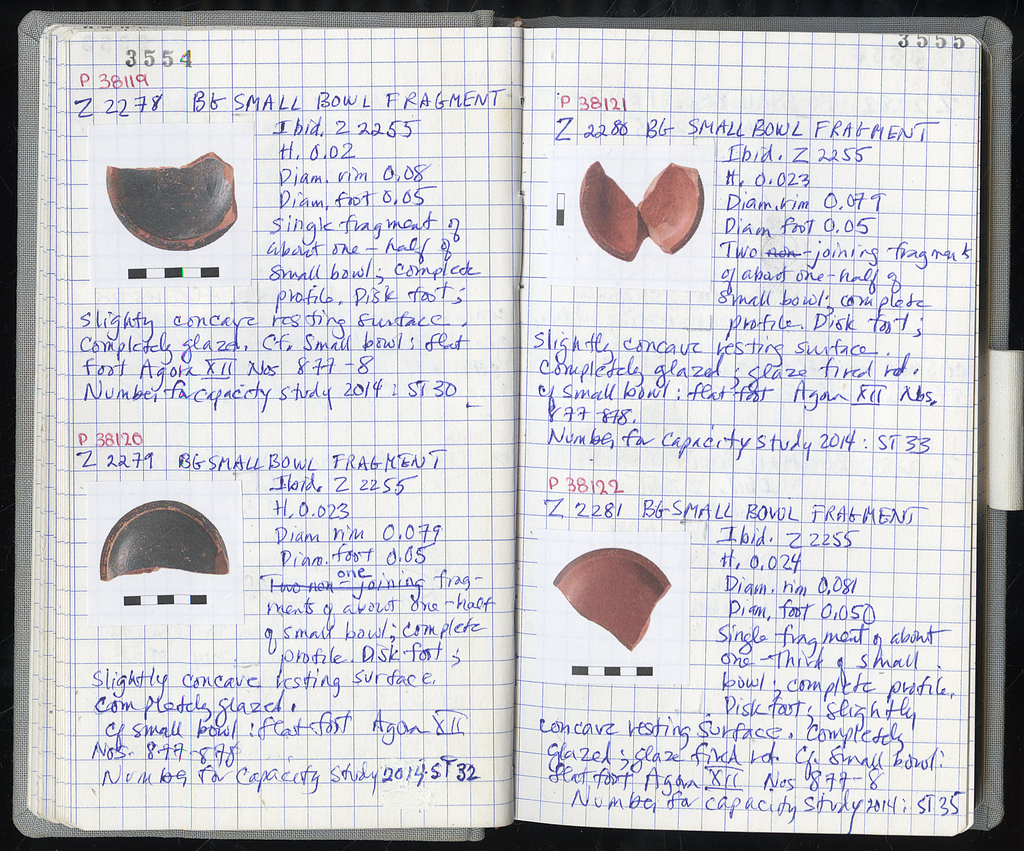 3554
P 38119
Z 2278 BG SMALL BOWL FRAGMENT
Ibid. Z 2255
H. 0.02
Diam. rim 0.08
Diam. foot 0.05
Single fragment of
about one-half of
small bowl; complete
profile. Disk foot;
slighty concave resting surface.
Completely glazed. Cf. Small bowl: flat
foot Agora XII Nos 877-8
Number for capacity study 2014: ST 30
P 38120
Z 2279 BG SMALL BOWL FRAGMENT
Ibid. Z 2255
H. 0.023
Diam rim 0.079
Diam. foot 0.05
one
Two non-joining frag-
ments of about one-half
of small bowl; complete
profile. Disk foot;
slightly concave resting surface.
Completely glazed.
Cf small bowl: flat foot Agora XII
Nos. 877-878
Number for Capacity Study 2014: ST 32
3555
P 38121
Z 2280 BG SMALL BOWL FRAGMENT
Ibid. Z 2255
H. 0.023
Diam. rim 0.079
Diam foot 0.05
Two non-joining fragments
of about one-half of
small bowl; complete
profile. Disk foot;
slightly concave resting surface.
Completely glazed; glaze fired rd.
cf small bowl: flat foot Agora XII Nos.
877-878.
Number for Capacity Study 2014: ST 33
P 38122
Z 2281 BG SMALL BOWL FRAGMENT
Ibid. Z 2255
H. 0.024
Diam. rim 0.081
Diam. foot 0.050
Single fragment of about
one-third of small
bowl; complete profile.
Disk foot; slightly
concave resting surface. Completely
glazed; glaze fired rd. Cf. Small bowl:
flat foot Agora XII Nos 877-8
Number for capacity study 2014: ST 35